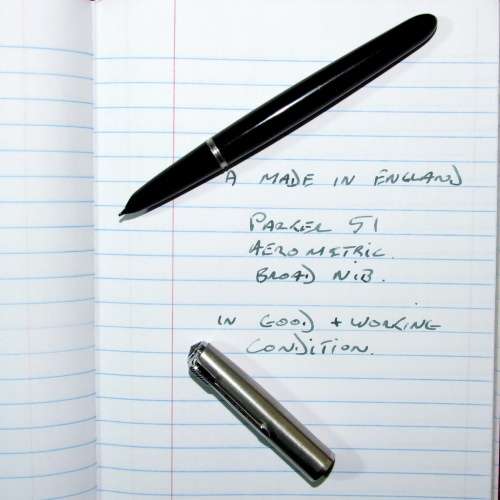 A MADE IN ENGLAND
PARKER 51
AEROMETRIC.
BROAD NIB.
IN GOOD + WORKING
CONDITION.